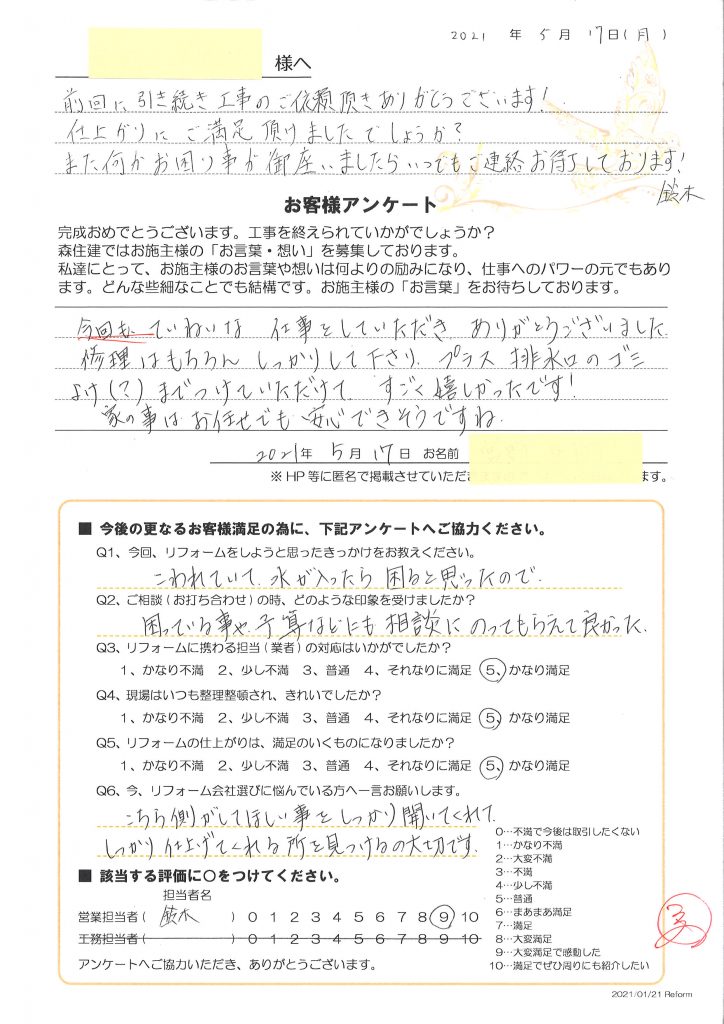 2021 年 5月 17日(月)
様へ
前回に引き続き工事のご依頼頂きありがとうございます!
仕上がりにご満足頂けましたでしょうか?
また何かお困り事が御座いましたらいつでもご連絡お待ちしております!
鈴木
お客様アンケート
完成おめでとうございます。工事を終えられていかがでしょうか?
森住建ではお施主様の「お言葉・想い」を募集しております。
私達にとって、お施主様のお言葉や想いは何よりの励みになり、仕事へのパワーの元でもあり
ます。どんな些細なことでも結構です。お施主様の「お言葉」をお待ちしております。
今回も、ていねいな 仕事をしていただき ありがとうございました
修理はもちろん しっかりして下さり、プラス 排水口のゴミ
よけ(?)までつけていただけて すごく嬉しかったです!
家の事はお任せでも安心できそうですね。
2021年 5月 17日 お名前
※HP等に匿名で掲載させていただき ます。
■ 今後の更なるお客様満足の為に、下記アンケートへご協力ください。
Q1、今回、リフォームをしようと思ったきっかけをお教えください。
こわれていて、水が入ったら 困ると思ったので。
Q2、ご相談(お打ち合わせ)の時、どのような印象を受けましたか?
困っている事や、予算などにも 相談に のってもらえて良かった。
Q3、リフォームに携わる担当(業者)の対応はいかがでしたか?
1、かなり不満 2、少し不満 3、普通 4、それなりに満足 5、かなり満足
Q4、現場はいつも整理整頓され、きれいでしたか?
1、かなり不満 2、少し不満 3、普通 4、それなりに満足 5、かなり満足
Q5、リフォームの仕上がりは、満足のいくものになりましたか?
1、かなり不満 2、少し不満 3、普通 4、それなりに満足 5、かなり満足
Q6、今、リフォーム会社選びに悩んでいる方へ一言お願いします。
こちら側がしてほしい事をしっかり聞いてくれて、
しっかり仕上げてくれる所を見つけるの大切です。
■ 該当する評価に○をつけてください。
担当者名
営業担当者( 鈴木 ) 0 1 2 3 4 5 6 7 8 9 10
工務担当者( ) 0 1 2 3 4 5 6 7 8 9 10
アンケートへご協力いただき、ありがとうございます。
0…不満で今後は取引したくない
1…かなり不満
2…大変不満
3…不満
4…少し不満
5…普通
6…まあまあ満足
7…満足
8…大変満足
9…大変満足で感動した
10…満足でぜひ周りにも紹介したい
2021/01/21 Reform